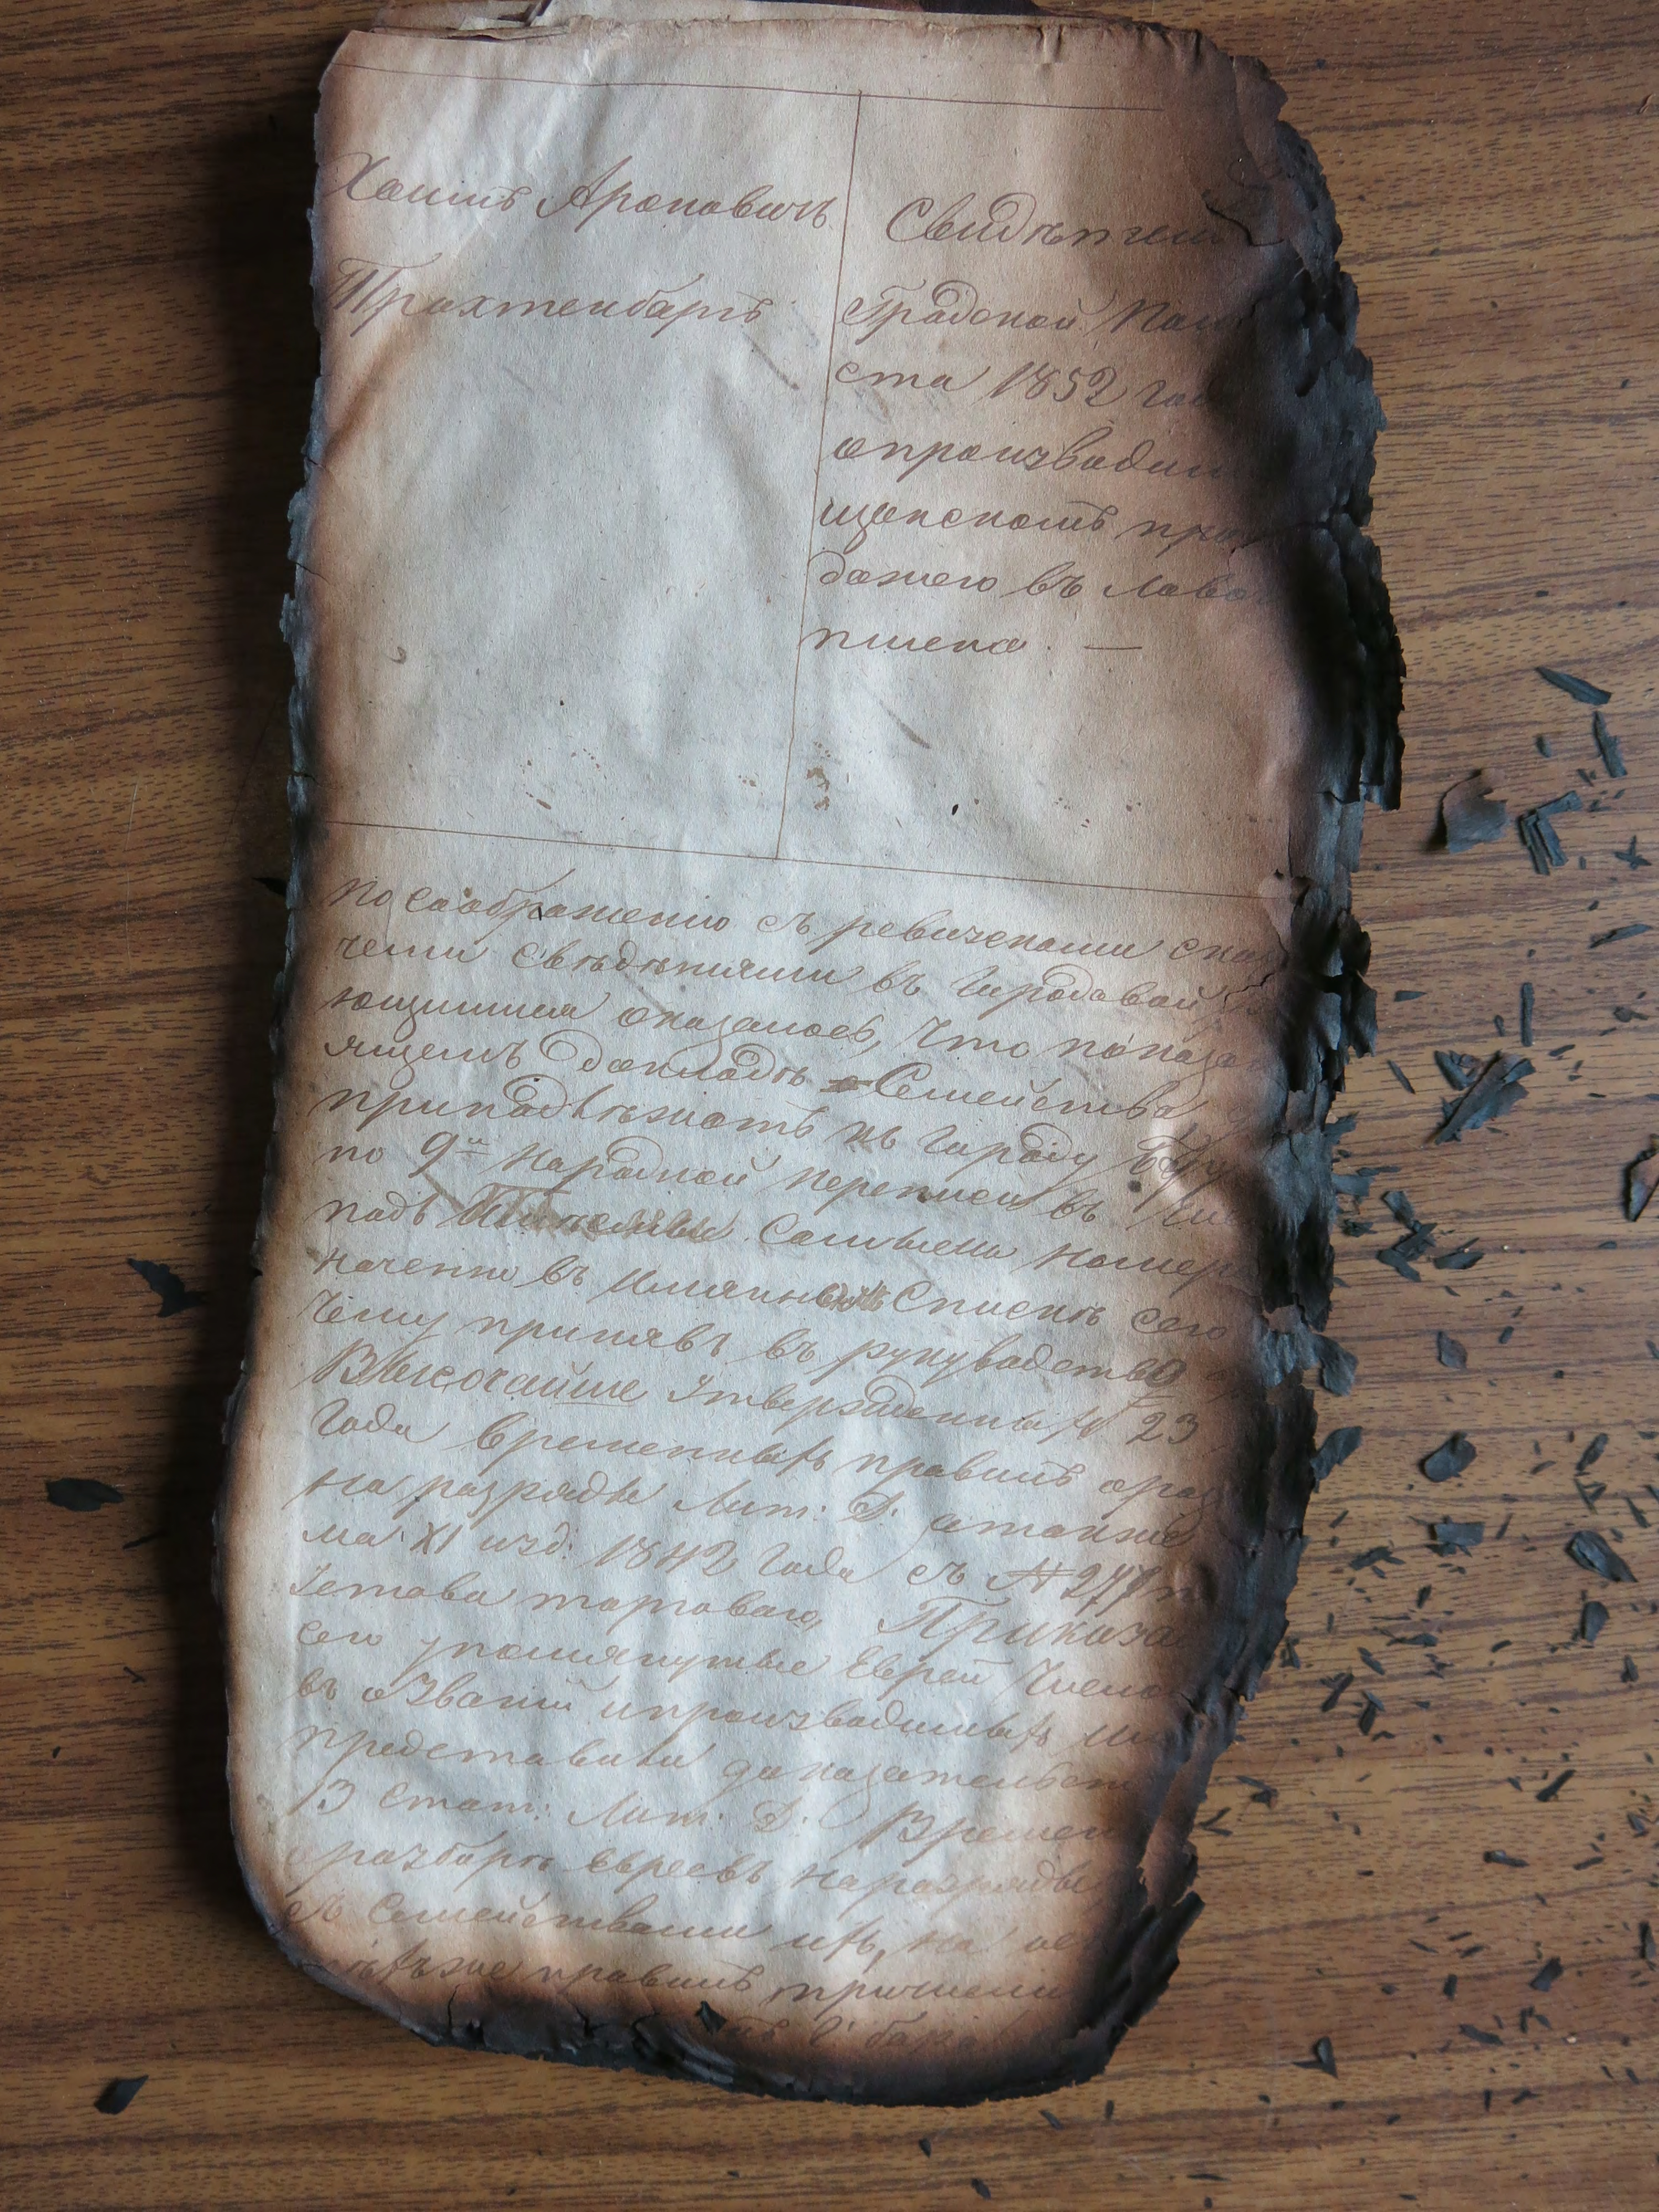 Хаимъ Ароновичъ
Трахтенбаргъ
Свидѣтел
Градской Пол
ста 1852 го
опроизводим
щанскомъ про
дажею въ лаво
пшена. —
По соображенію съ ревизскими ска
чеми свѣдѣніями въ Городовой
ющимися оказалось, что показа
ящемъ докладѣ Семейства
принадлѣжатъ къ городу
по 9й Народной переписи въ
подъ номер
наченно въ имянномъ Спискѣ сего
чему принявъ въ рукуводство
Высочайше утвержденныхъ 23
года временныхъ правилъ ораз
на разряды Лит: D. атакже
ма XI изд: 1842 года съ № 277
Устава торговаго, Приказа
сего упомянутые Евреи
въ озваніи ипроизводимыхъ
представили доказательст
13 стат: Лит: D. Времен
оразборѣ евреевъ наразряды
съ Семействами ихъ, на
правилъ причисли